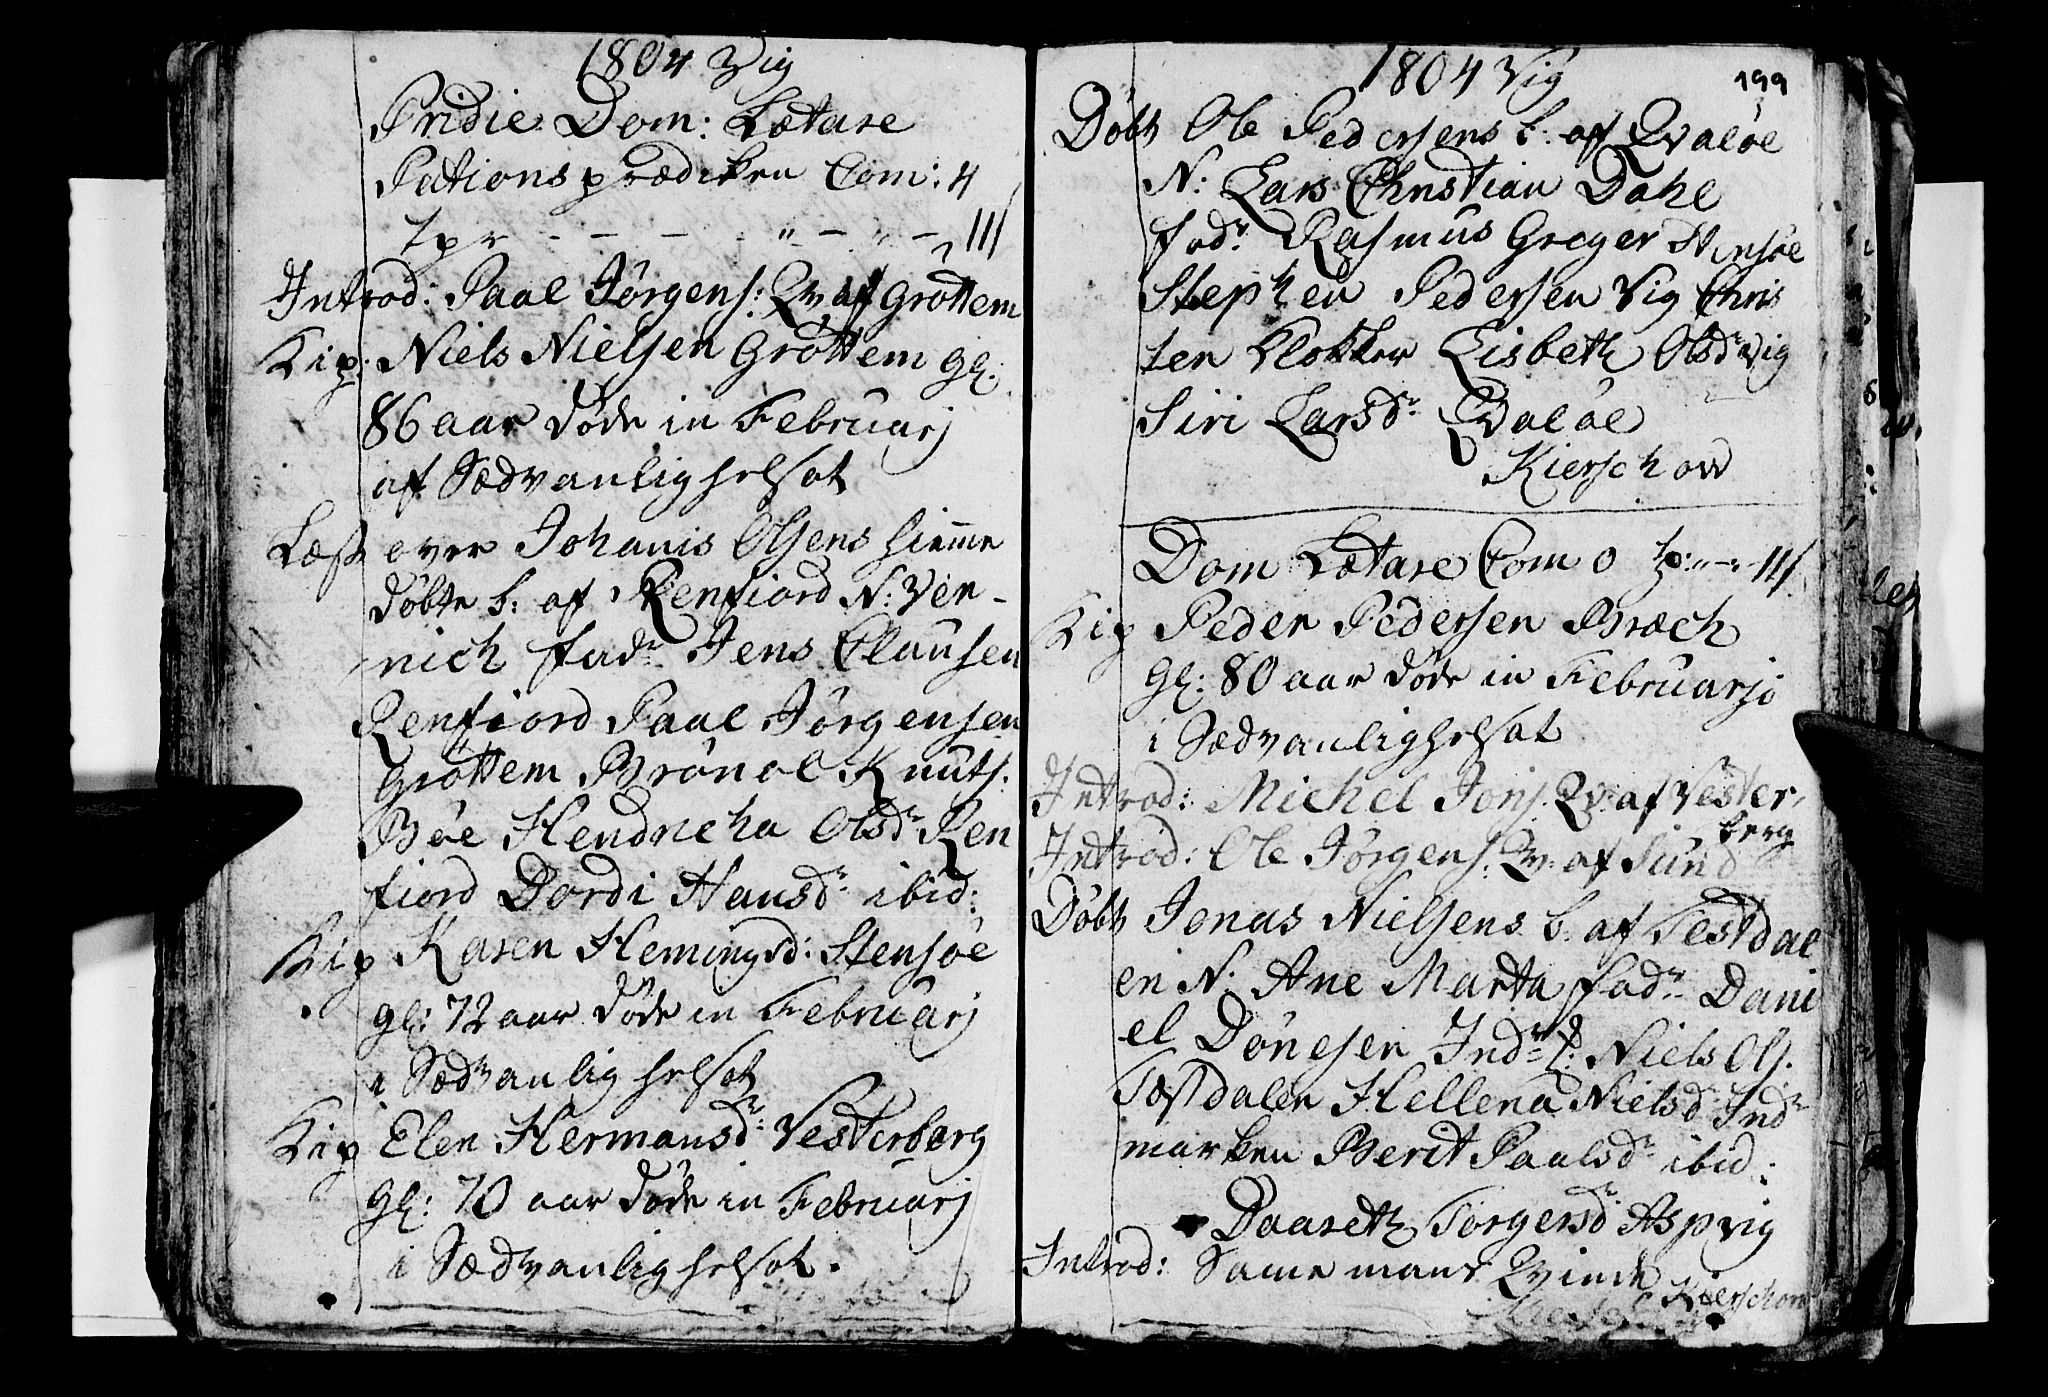 1804 Vig
Pridie Dom: Lætare
Pationsprædiken Com: 4
tpr - - - - „ - „ - 111
Introd: Paal Jørgens: Qv: af Grøttem
Kip: Niels Nielsen Grøttem gl:
86 aar døde in Februarj
af Sædvanlig helsot
Læst over Johanis Olsens hiemme
døbte b: af Renfiord N: Ver-
nich fadr Jens Clausen
Renfiord Paal Jørgensen
Grøttem Brønel Knuts:
Bøe Hendricha Olsdr Ren
fiord Dordi Hansdr ibid:
Kip Karen Hemingsd: Stensøe
gl: 72 aar døde in Februarj
i Sædvanlig helsot
Kip Elen Hermansdr Vesterberg
gl: 70 aar døde in Februarj
i Sædvanlig helsot.
1804 Vig
199
Døbt Ole Pedersens b: af Qvaløe
N: Lars Christian Dahl
fadr Rasmus Greger Stensøe
Stephen Pedersen Vig Chris
ten Klokker Lisbeth Olsdr Vig
Siri Larsdr Qvaløe
Kierschow
Dom Lætare Com 0 tp: „-„- 111
Kip Peder Pedersen Bræch
gl: 80 aar døde in Februarjo
i Sædvanlighelsot
Introd: Michel Jons: Qv: af Vester
berg
Introd: Ole Jørgens: Qv: af Sund
Døbt Jonas Nielsens b: af Testdal
en N: Ane Marta fadr Dani
el Dønesen Indr Niels Ols:
Testdalen Hellena Nielsd Indr
marken Berit Paalsdr ibid:
Daareth Torgersdr Aspvig
Introd: Same mans Qvinde
Kierschow